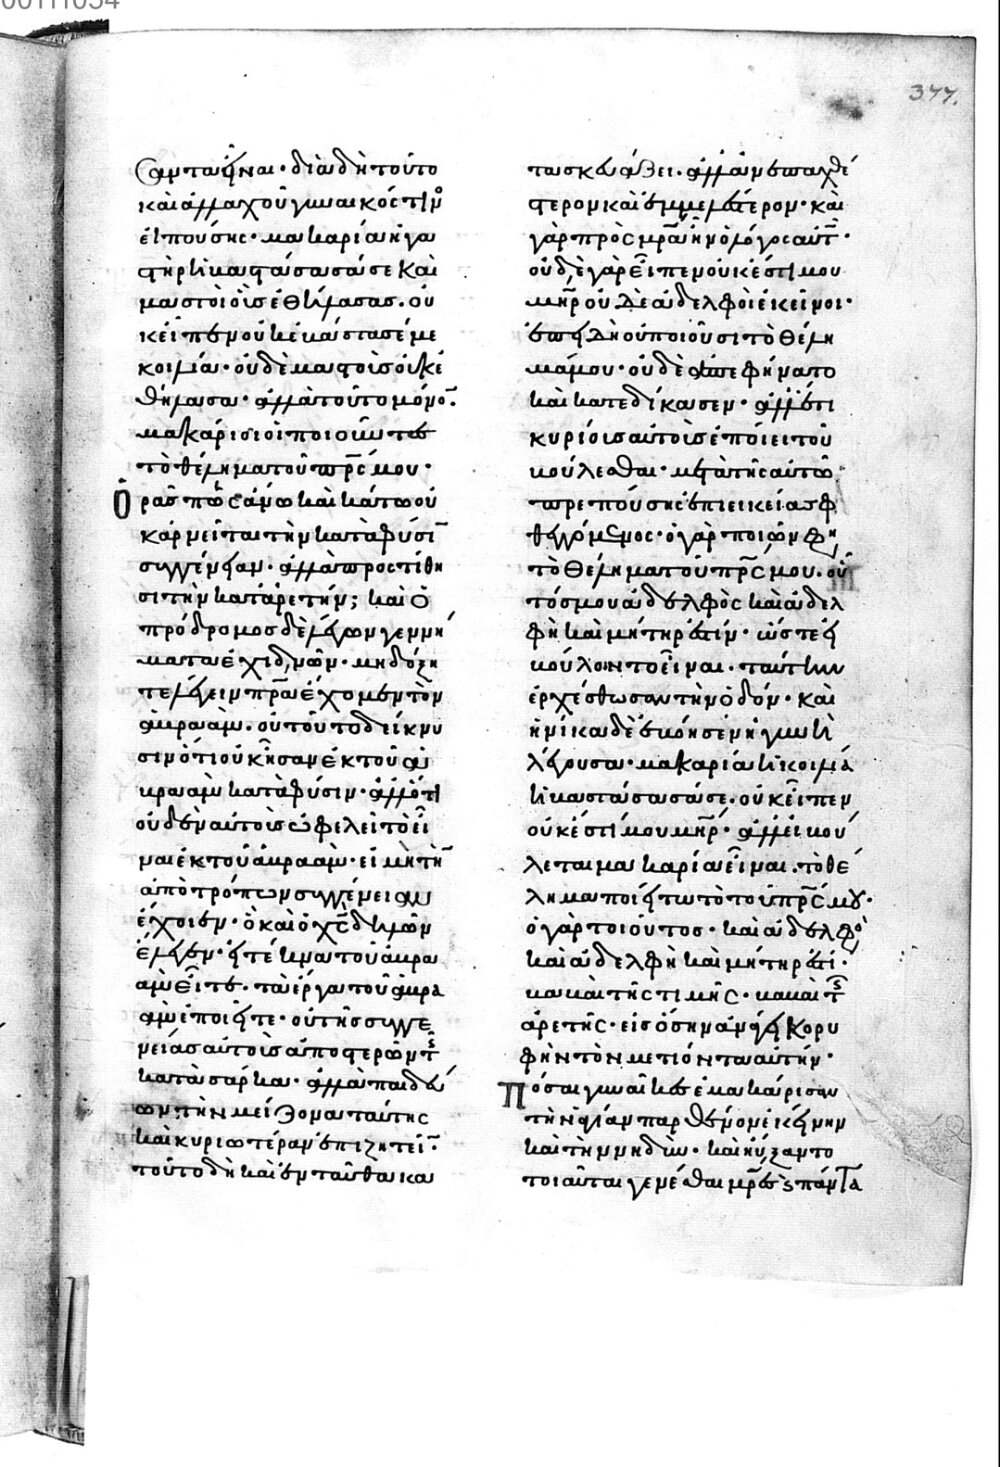 377.
σαντα εἶναι· διὰ δὴ τοῦτο
καὶ ἀλλαχοῦ γυναικός τιν(ο)
εἰπούσης· μακαρία ἡ γα
στὴρ ἡ βαστάσασά σε καὶ
μαστοὶ οἷς ἐθήλασας. οὐ
κ εἶπεν οὐκ ἐβάστασέ με
κοιλία· οὐδὲ μαστοὺς οὐκ ἐ
θήλασα· ἀλλὰ τοῦτο μόνον·
μακάριοι οἱ ποιοῦντες
τὸ θέλημα τοῦ πρς μου·
Ὁρᾷς πῶς ἄνω καὶ κάτω οὐ
κ ἀρνεῖται τὴν κατὰ φύσι
συγγένειαν· ἀλλὰ προστίθη
σι τὴν κατ ἀρετήν; καὶ ὁ
πρόδρομος δὲ λέγων γεννή
ματα ἐχιδνῶν· μὴ δόξη
τε λέγειν πρα ἔχομεν τὸν
ἀβραάμ. οὐ τοῦτο δείκνυ
σιν ὅτι οὐκ ἦσαν ἐκ τοῦ ἀ
βραὰμ κατὰ φύσιν· ἀλλ ὅτι
οὐδὲν αὐτοῖς ὠφελεῖ τὸ εἶ
ναι ἐκ τοῦ ἀβραάμ· εἰ μὴ τὴ
ἀπὸ τρόπων συγγένειαν
ἔχοιεν· ὃ καὶ ὁ χς δηλῶν
ἔλεγεν· εἰ τέκνα τοῦ ἀβρα
ὰμ εἶτε· τὰ ἔργα τοῦ ἀβρα
ὰμ ἐποιεῖτε· οὐ τῆς συγγε
νείας αὐτοὺς ἀποστερῶν τς
κατὰ σάρκα· ἀλλὰ παιδεύ
ων τὴν μείζονα ταύτης
καὶ κυριωτέραν ἐπιζητεῖ·
τοῦτο δὴ καὶ ἐνταῦθα κα
τασκευάζει. ἀλλ ἀνεπαχθέ
στερον καὶ ἐμμελέστερον· καὶ
γὰρ πρὸς μρα ἦν ὁ λόγος αὐτ·
οὐδὲ γὰρ εἶπεν οὐκ ἔστι μου
μηρ οὐδὲ ἀδελφοὶ ἐκεῖνοι·
ἐπειδὴ οὐ ποιοῦσι τὸ θέλη
μά μου· οὐδὲ ἀπεφήνατο
καὶ κατεδίκασεν· ἀλλ ἔτι
κυρίους αὐτοὺς ἐποίει τοῦ
βούλεσθαι· μετὰ τῆς αὐτῷ
πρεπούσης ἐπιεικείας φ
θεγγόμενος· ὁ γὰρ ποιῶν φη
τὸ θέλημα τοῦ πρς μου. οὗ
τός μου ἀδελφὸς καὶ ἀδελ
φὴ καὶ μήτηρ ἐστίν· ὥστε εἰ
βούλονται εἶναι. ταύτην
ἐρχέσθωσαν τὴν ὁδόν· καὶ
ἡνίκα δὲ ἐβόησεν ἡ γυνὴ
λέγουσα· μακαρία ἡ κοιλία
ἡ βαστάσασά σε. οὐκ εἶπεν
οὐκ ἔστι μου μηρ· ἀλλ εἰ βού
λεται μακαρία εἶναι. τὸ θέ
λημα ποιείτω τὸ τοῦ πρς μου·
ὁ γὰρ τοιοῦτος· καὶ ἀδελφὸ
καὶ ἀδελφὴ καὶ μήτηρ ἐστί·
βαβαὶ τῆς τιμῆς· βαβαὶ τς
ἀρετῆς· εἰς ὅσην ἀνάγει κορυ
φὴν τὸν μετιόντα αὐτήν·
Πόσαι γυναῖκες ἐμακάρισαν
τὴν ἁγίαν παρθένον ἐκείνην
καὶ τὴν νηδύν· καὶ ηὔξαντο
τοιαῦται γενέσθαι μρες καὶ πάντα